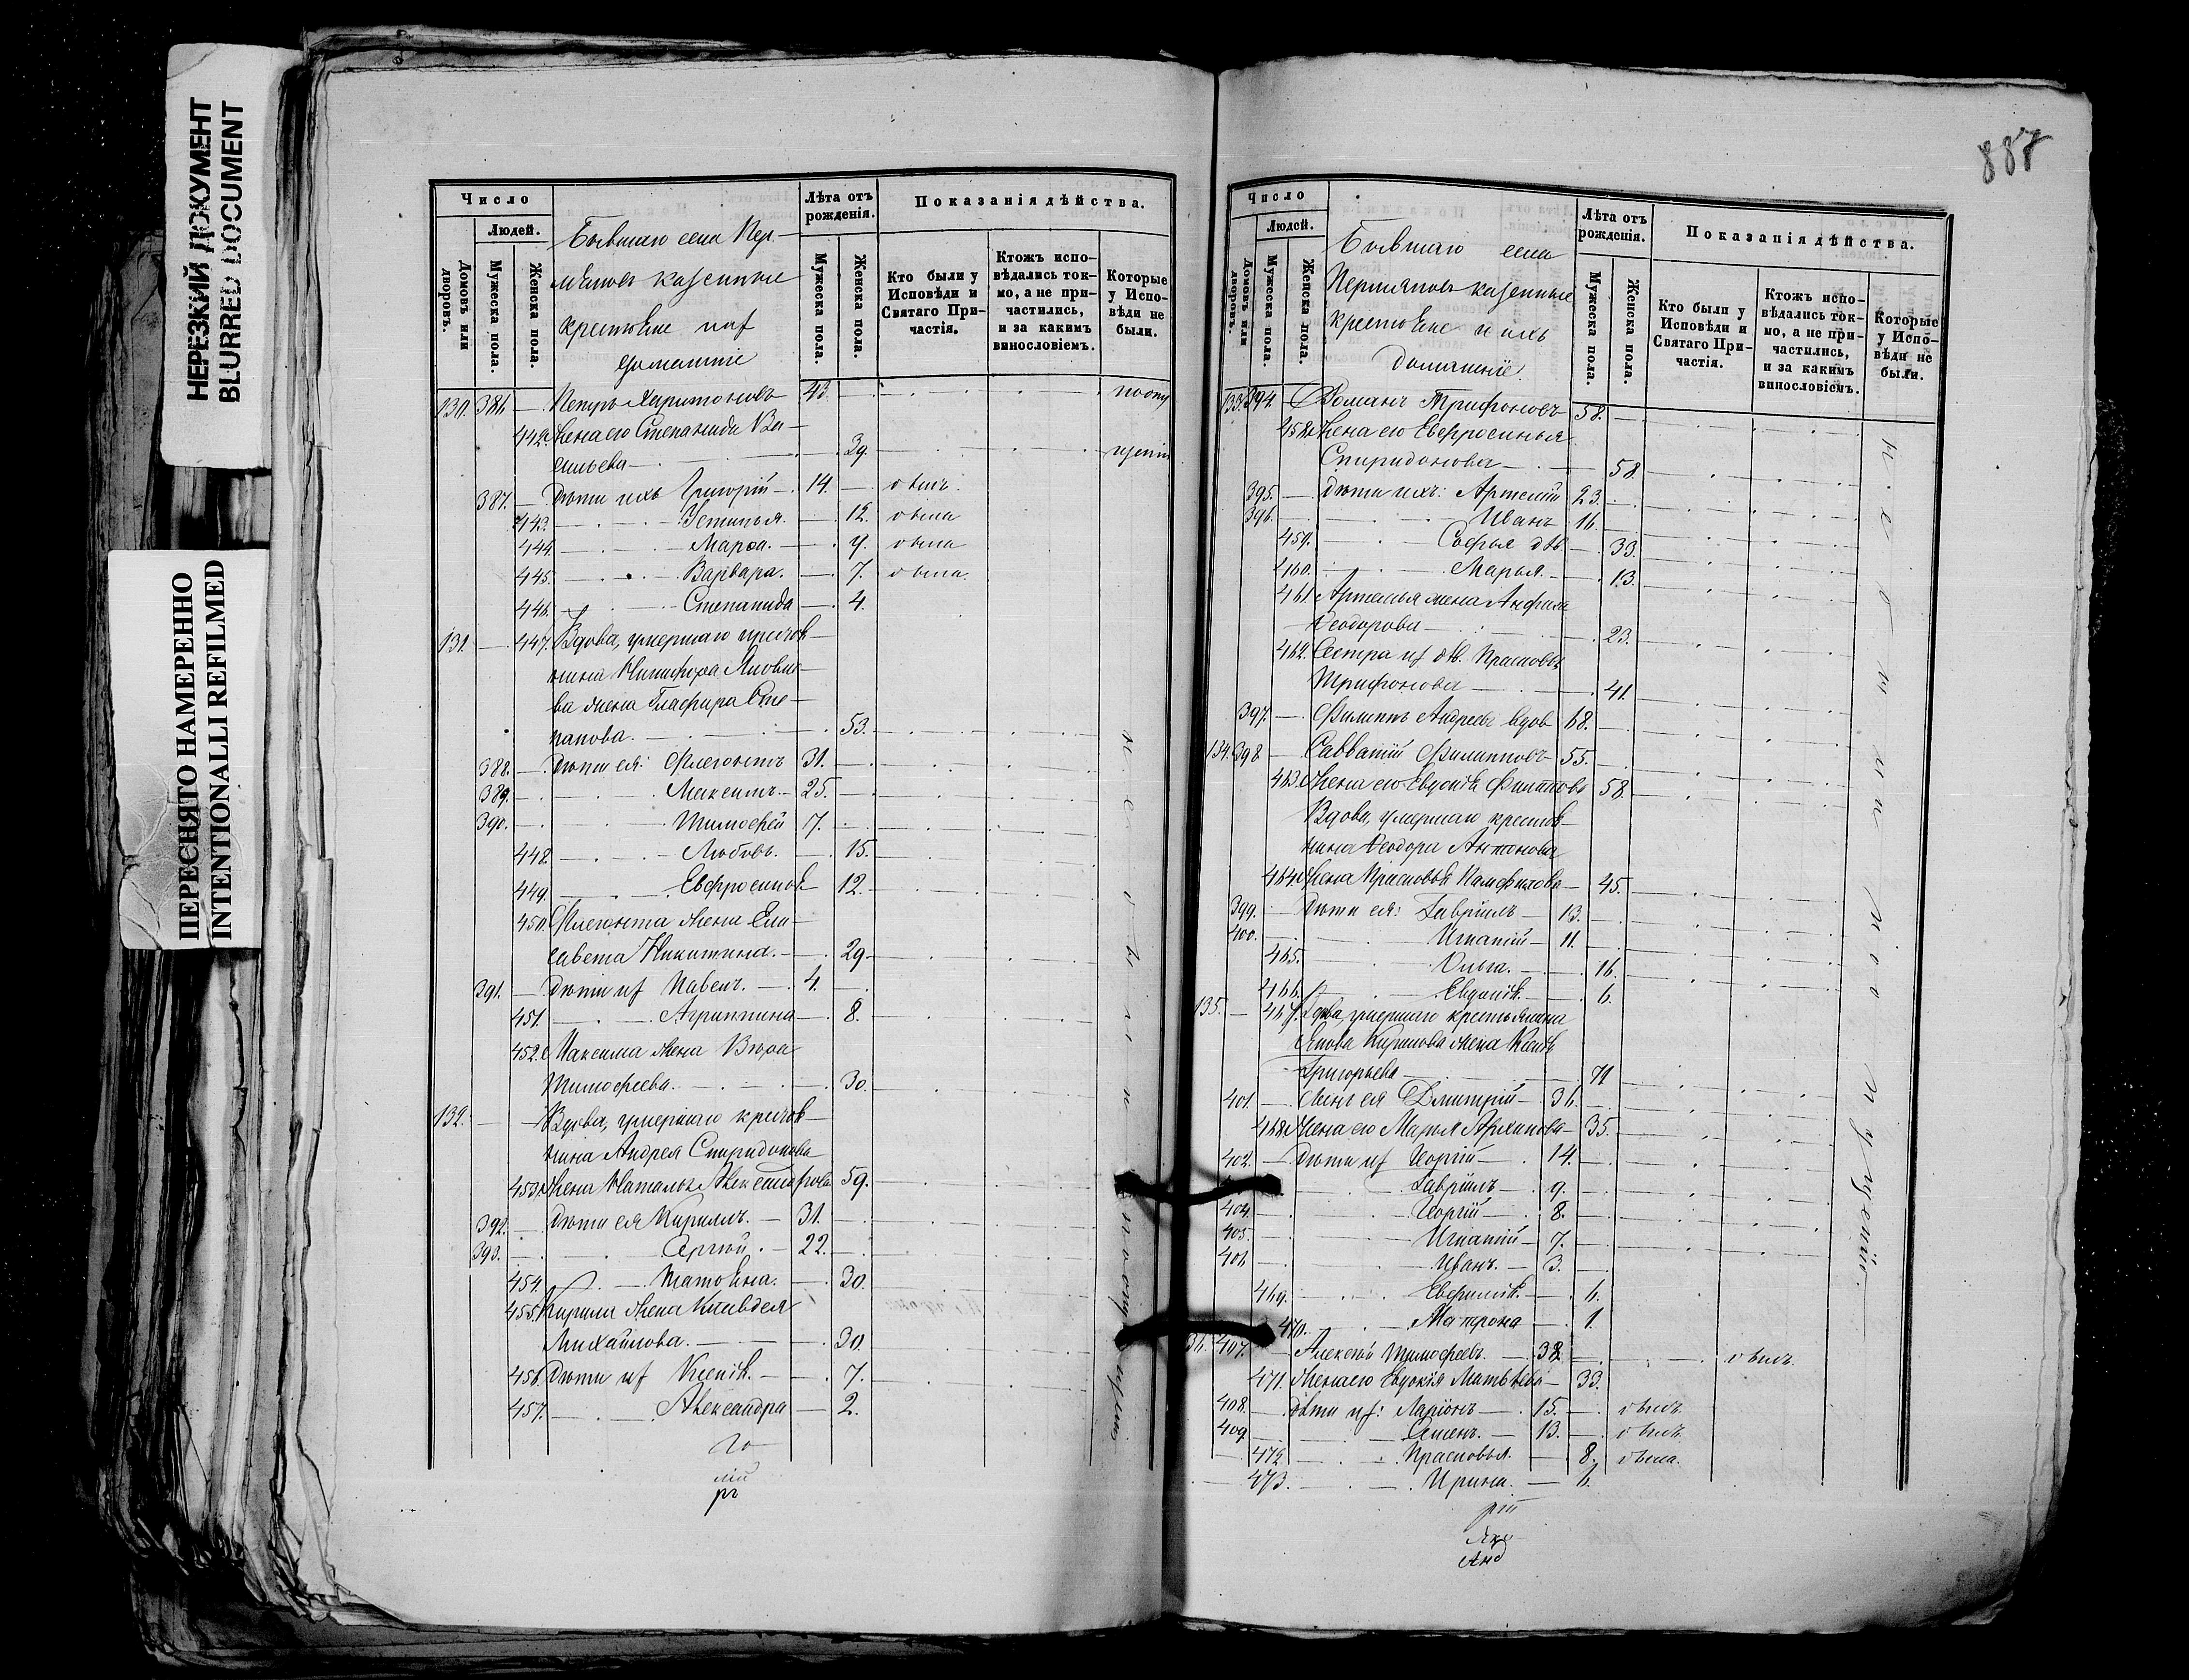 НЕРЕЗКИЙ ДОКУМЕНТ
BLURRED DOCUMENT
ПЕРЕСНЯТО НАМЕРЕННО
INTENTIONALLI REFILMED
Число
Людей.
Домовъ или дворовъ.
Мужеска пола.
Женска пола.
Бывшаго села Пер-
мяковъ казенные
крестьяне и ихъ
домашніе
Лѣта отъ рожденія.
Мужеска пола.
Женска пола.
Показанія дѣйства.
Кто были у Исповѣди и Святаго При-частія.
Ктожъ испо-вѣдались ток-мо, а не при-частились, и за какимъ винословіемъ.
Которые у Испо-вѣди не были.
130. 386. — Петръ Харитоновъ 43.
442. Жена его Степанида Ва-
сильева — 39.
387. — Дѣти ихъ Григорій — 14. — былъ
443. Устинья. — 12. была
444. Марѳа. — 9. была
445. Варвара. — 7. была
446. Степанида — 4.
131. — 447. Вдова, умершаго крестья-
нина Никифора Яковле-
ва жена Глафира Сте-
панова. — 53.
388. — Дѣти ея: Флегонтъ 31.
389. Максимъ. — 25.
390. Тимофей 17.
448. Любовь. — 15.
449. Евфросинія — 12.
450. Флегонта жена Ели-
савета Никитина. — 29
391. — Дѣти их Павелъ. — 4.
451. Агриппина — 8.
452. Максима жена Вѣра
Тимофеева. — 30.
132. — Вдова, умершаго крестья-
нина Андрея Спиридонова
453. Жена Наталья Александрова 59.
392. Дѣти ея Кириллъ. — 31.
393. Сергій. — 22.
454. Татьяна. — 30.
455. Кирила жена Клавдія
Михайлова. — 30.
456. Дѣти их Ксенія. — 7.
457. Александра — 2.
не были по опущенію
887
Число
Людей.
Домовъ или дворовъ.
Мужеска пола.
Женска пола.
Бывшаго села
Пермяковъ казенные
крестьяне и ихъ
домашніе.
Лѣта отъ рожденія.
Мужеска пола.
Женска пола.
Показанія дѣйства.
Кто были у Исповѣди и Святаго При-частія.
Ктожъ испо-вѣдались ток-мо, а не при-частились, и за какимъ винословіемъ.
Которые у Испо-вѣди не были.
133. 394. — Романъ Трифоновъ 58.
458. Жена его Евфросинья
Спиридонова — 58
395. — Дѣти ихъ: Артемій 23.
396. Иванъ 16.
459. Софья дѣв. — 33.
460. Марья. — 13.
461. Артемья жена Анфиса
Ѳеодорова — 23.
462. Сестра их дѣв. Прасковья
Трифонова — 41
397. — Филиппъ Андреевъ вдов 68.
134. 398 — Савватій Филипповъ — 55.
463. Жена его Евдокія Филиппова 58.
Вдова, умершаго крестья-
нина Ѳеодора Антонова
464. Жена Прасковья Памфилова — 45.
399. Дѣти ея: Гавріилъ — 13.
400. Игнатій — 11.
465. Ольга. — 16.
466. Евдокія. — 6.
135. — 467. Вдова, умершаго крестьянина
Якова Кирилова жена Ксенія
Григорьева — 71
401. — Сынъ ея Дмитрій — 36.
468. Жена его Марья Архипова — 35.
402. — Дѣти их Георгій — 14.
Гавріилъ — 9.
404. Георгій — 8.
405. Игнатій — 7.
406 Иванъ. — 3.
469. Евфимія. — 6.
470. Матрона — 1.
36. 407. — Алексѣй Тимофеевъ. — 38. былъ.
471. Жена его Евдокія Матвѣева — 33.
408. — Дѣти их: Ларіонъ — 15. — былъ
409 Семенъ. — 13. — былъ
472 Прасковья. — 8. была.
473. Ирина. — 6.
не были по опущенію.